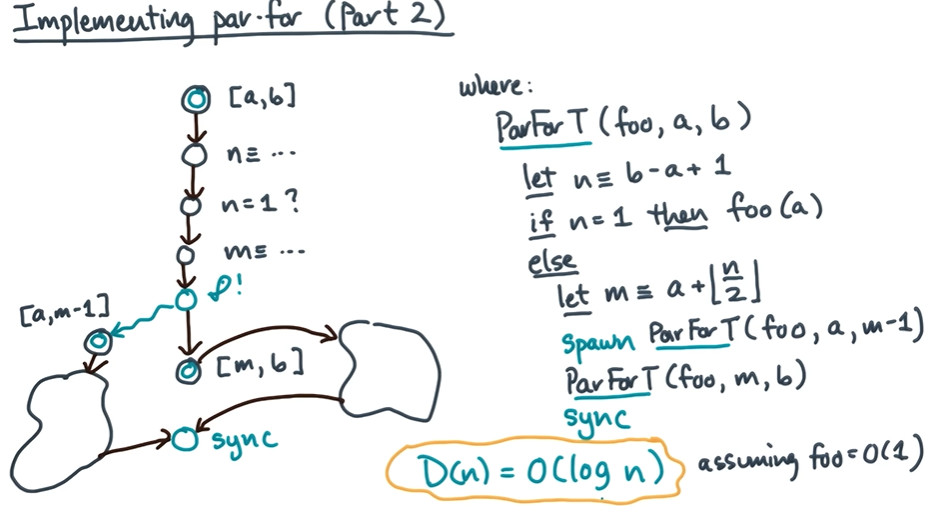 Implementing par-for (Part 2)
[a,b]
n≡ ...
n=1?
m≡ ...
[a,m-1]
[m,b]
sync
where:
ParForT(foo, a, b)
let n≡ b-a+1
if n=1 then foo(a)
else
let m≡ a+⌊n/2⌋
spawn ParForT(foo, a, m-1)
ParForT(foo, m, b)
sync
D(n) = O(log n)
assuming foo=O(1)